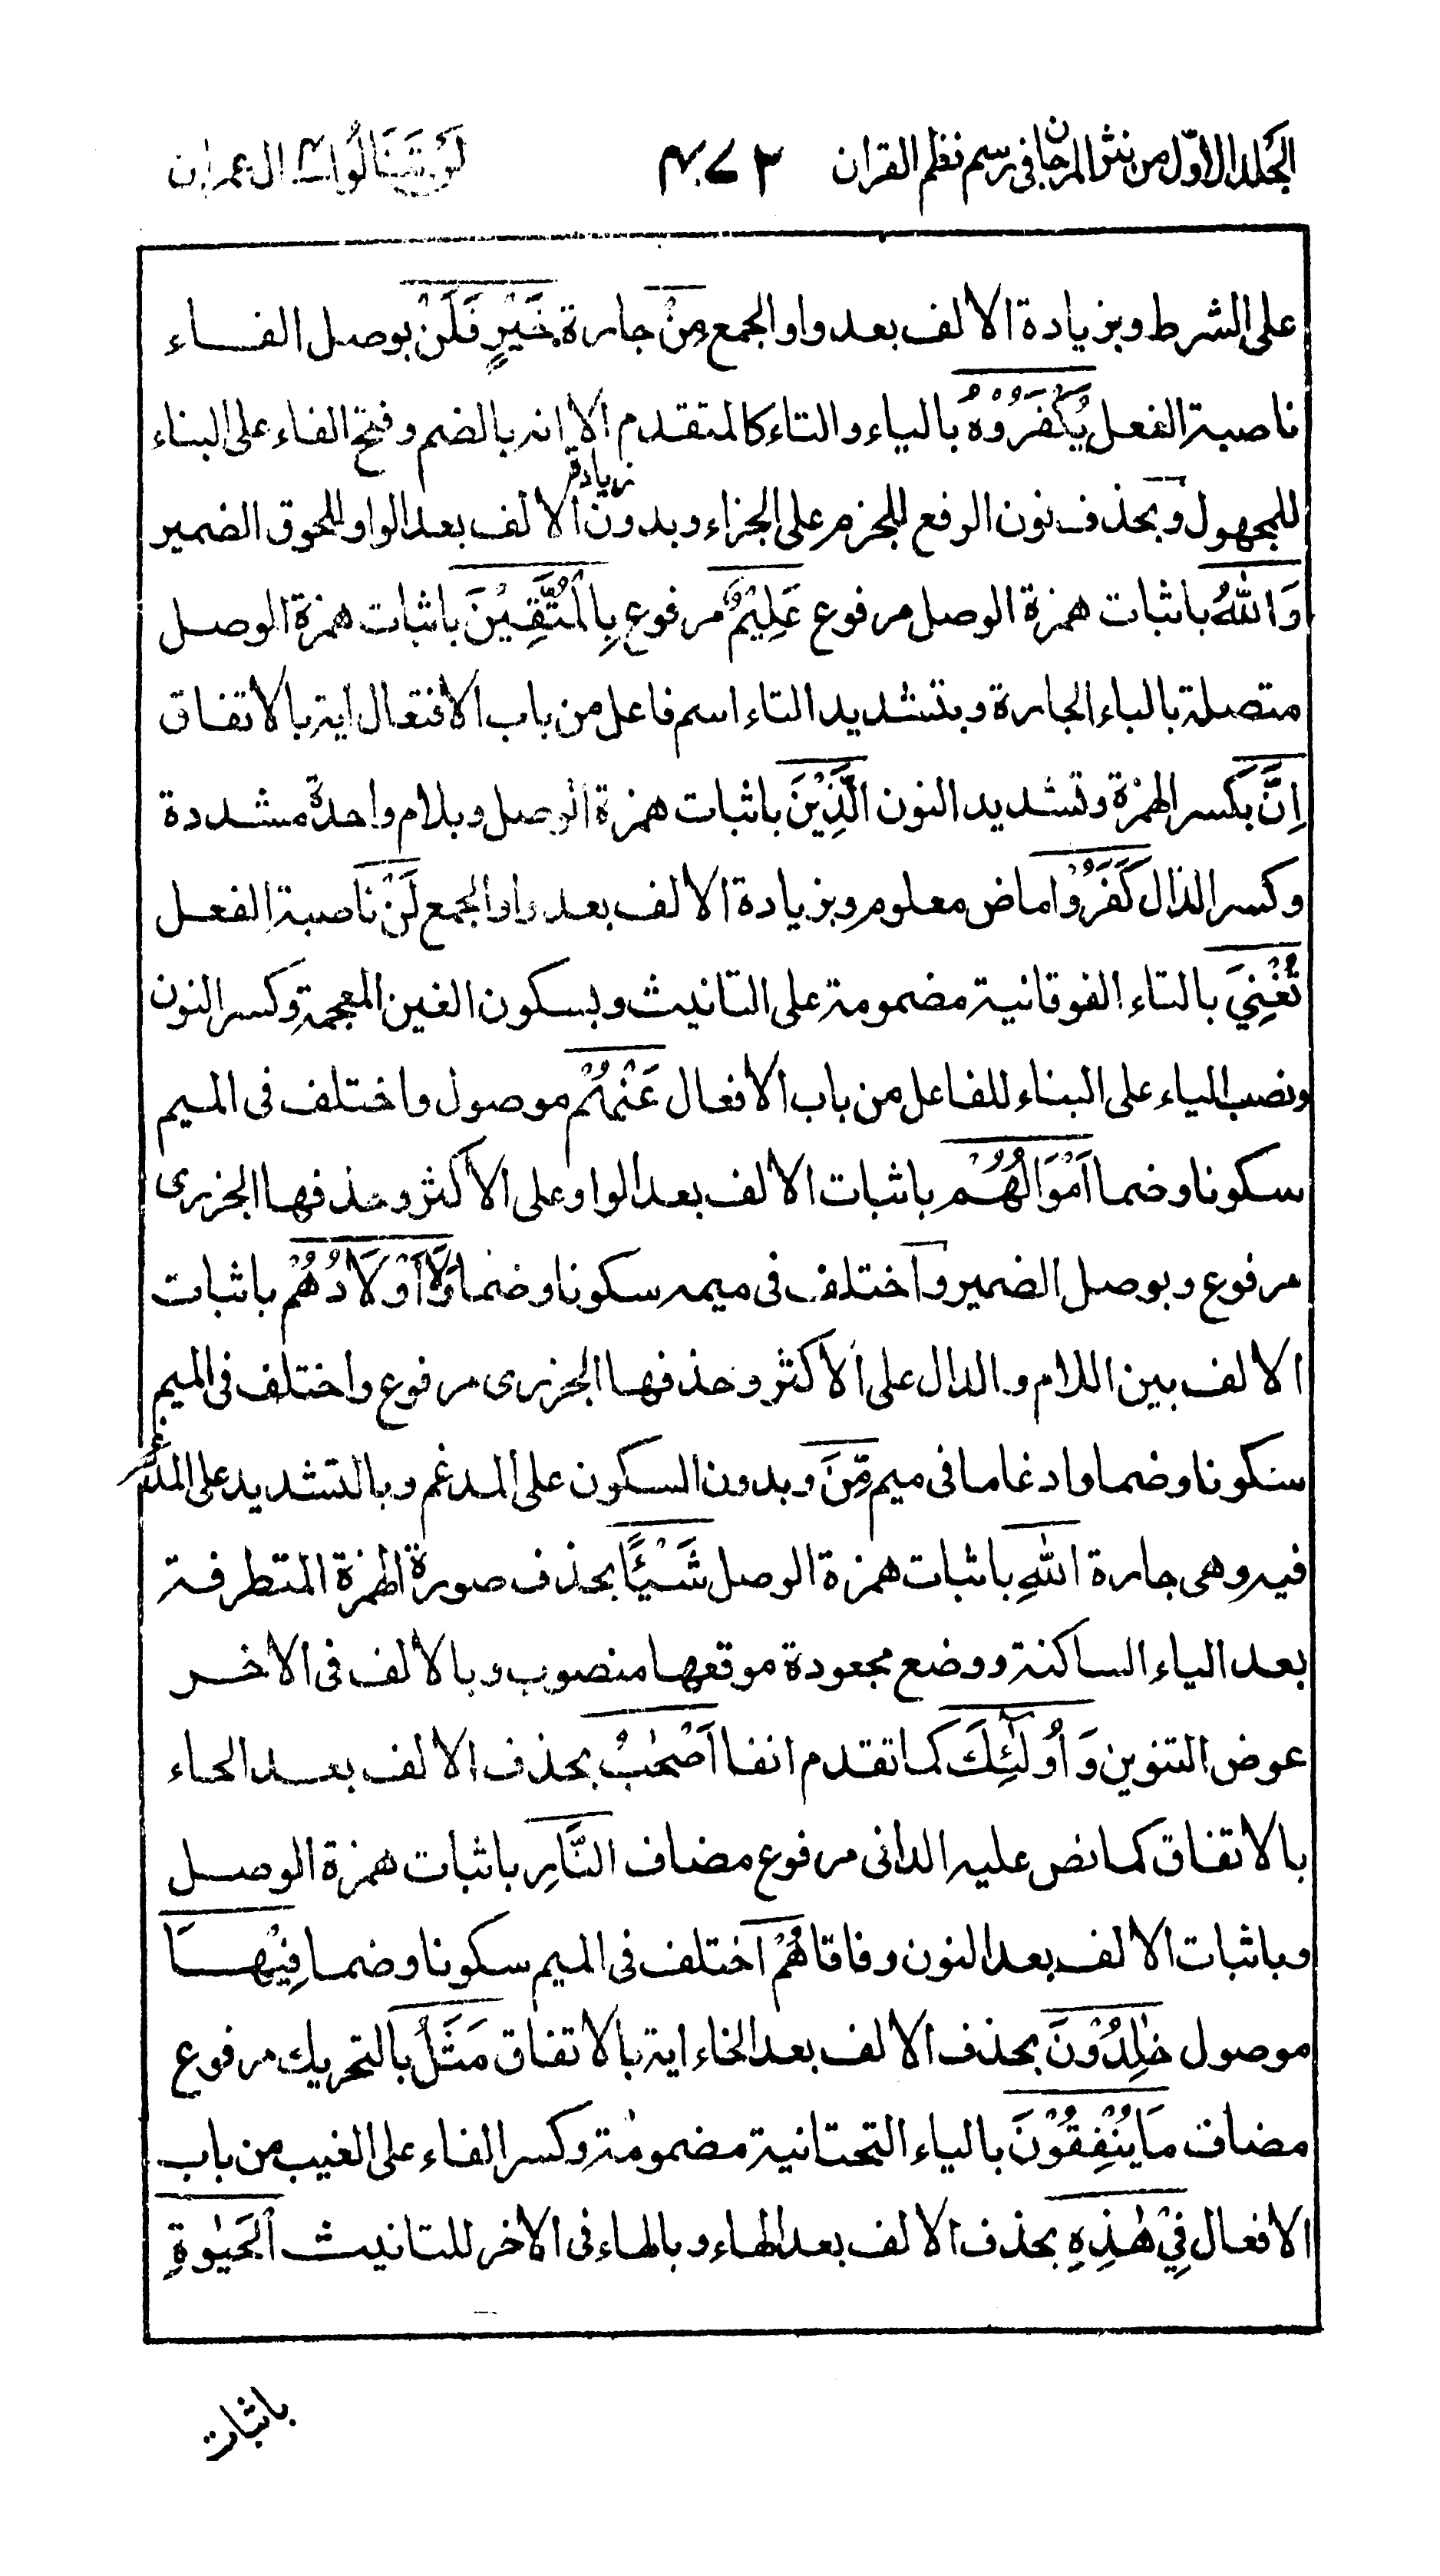 الجلد الاول من نثر المرجان فى رسم نظم القران
لن تنالوا ال عمران
على الشرط وبزيادة الالف بعد واو الجمع مِنْ جارة خَيْرٍ فَلَنْ بوصل الفاء
ناصبة الفعل يُكْفَرُوْهُ بالياء والتاء كالمتقدم الا انه بالضم وفتح الفاء على البناء
للمجهول وبحذف نون الرفع للجزم على الجزاء وبدون زيادة الالف بعد الواو للحوق الضمير
وَاللّٰهُ باثبات همزة الوصل مرفوع عَلِيْمٌ مرفوع بِالْمُتَّقِيْنَ باثبات همزة الوصل
متصلة بالباء الجارة وبتشديد التاء اسم فاعل من باب الافتعال اية بالاتفاق
اِنَّ بكسر الهمزة وتشديد النون الَّذِيْنَ باثبات همزة الوصل وبلام واحدة مشددة
وكسر الذال كَفَرُوْا ماض معلوم وبزيادة الالف بعد واو الجمع لَنْ ناصبة الفعل
تُغْنِيَ بالتاء الفوقانية مضمومة على التانيث وبسكون الغين المعجمة وكسر النون
ونصب الياء على البناء للفاعل من باب الافعال عَنْهُمْ موصول واختلف فى الميم
سكونا وضما اَمْوَالُهُمْ باثبات الالف بعد الواو على الاكثر وحذفها الجزرى
مرفوع وبوصل الضمير واختلف فى ميمه سكونا وضما وَلَآ اَوْلَادُهُمْ باثبات
الالف بين اللام والدال على الاكثر وحذفها الجزرى مرفوع واختلف فى الميم
سكونا وضما وادغاما فى ميم مِّنَ وبدون السكون على المدغم وبالتشديد على المدغم
فيه وهى جارة اللّٰهِ باثبات همزة الوصل شَيْـًٔا بحذف صورة الهمزة المتطرفة
بعد الياء الساكنة ووضع مجعودة موقعها منصوب وبالالف فى الاخر
عوض التنوين وَاُولٰٓئِكَ كما تقدم انفا اَصْحٰبُ بحذف الالف بعد الحاء
بالاتفاق كما نص عليه الدانى مرفوع مضاف النَّارِ باثبات همزة الوصل
وباثبات الالف بعد النون وفاقا هُمْ اختلف فى الميم سكونا وضما فِيْهَا
موصول خٰلِدُوْنَ بحذف الالف بعد الخاء اية بالاتفاق مَثَلُ بالتحريك مرفوع
مضاف مَا يُنْفِقُوْنَ بالياء التحتانية مضمومة وكسر الفاء على الغيب من باب
الافعال فِيْ هٰذِهِ بحذف الالف بعد الهاء وبالهاء فى الاخر للتانيث الْحَيٰوةِ
باثبات